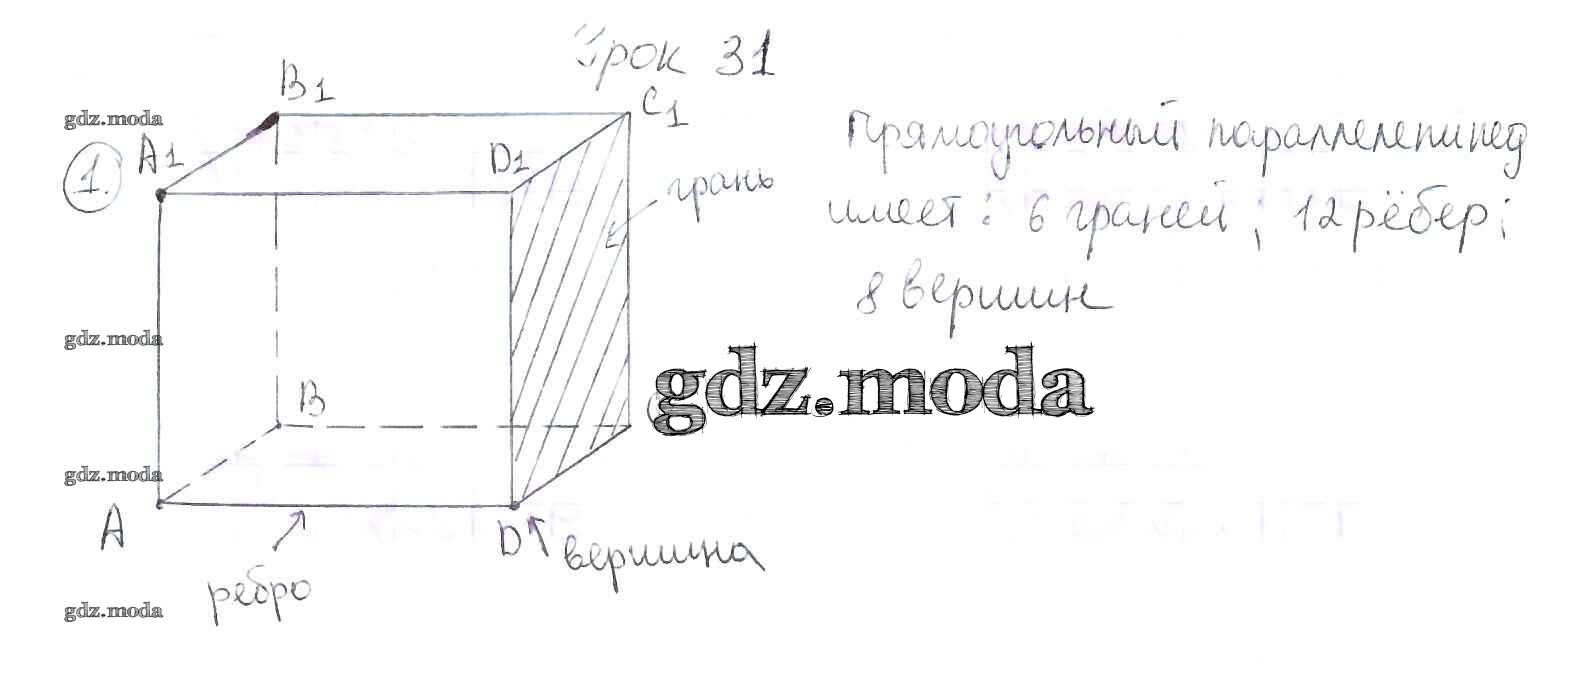 Урок 31
B1
C1
gdz.moda
A1
D1
1.
грань
Прямоугольный параллелепипед
имеет: 6 граней; 12 рёбер;
8 вершин
gdz.moda
gdz.moda
B
gdz.moda
A
D
вершина
ребро
gdz.moda